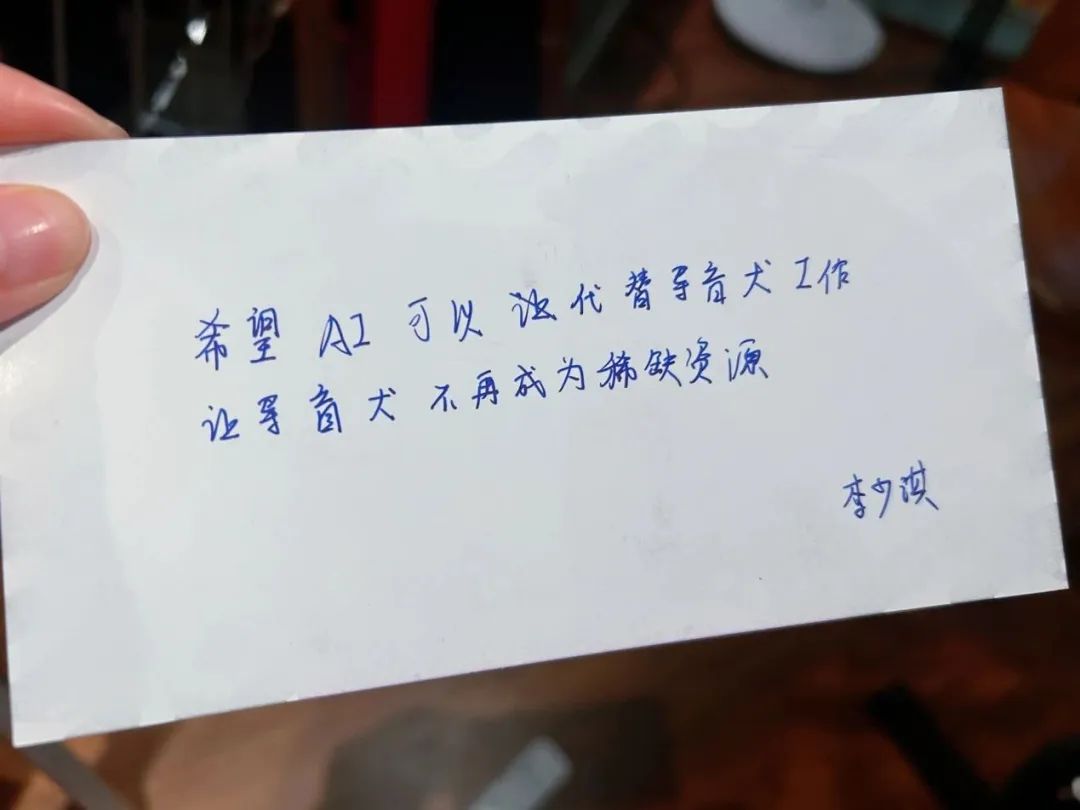 希望 AI 可以让代替导盲犬工作
让导盲犬不再成为稀缺资源
李少淇